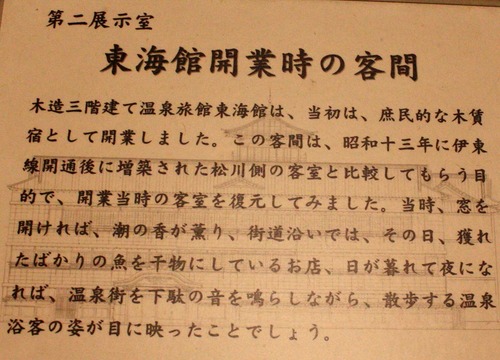 第二展示室
東海館開業時の客間
木造三階建て温泉旅館東海館は、当初は、庶民的な木賃
宿として開業しました。この客間は、昭和十三年に伊東
線開通後に増築された松川側の客室と比較してもらう目
的で、開業当時の客室を復元してみました。当時、窓を
開ければ、潮の香が薫り、街道沿いでは、その日、獲れ
たばかりの魚を干物にしているお店、日が暮れて夜にな
れば、温泉街を下駄の音を鳴らしながら、散歩する温泉
浴客の姿が目に映ったことでしょう。